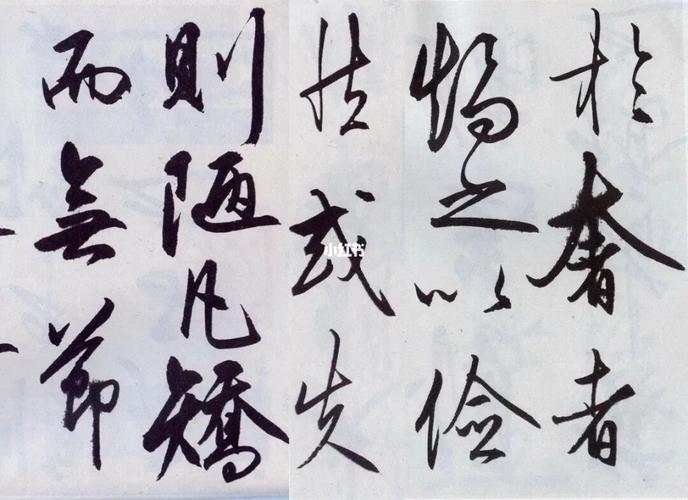 於奢者
矯之以儉
法或失
則陋凡矯
而無節
小红书